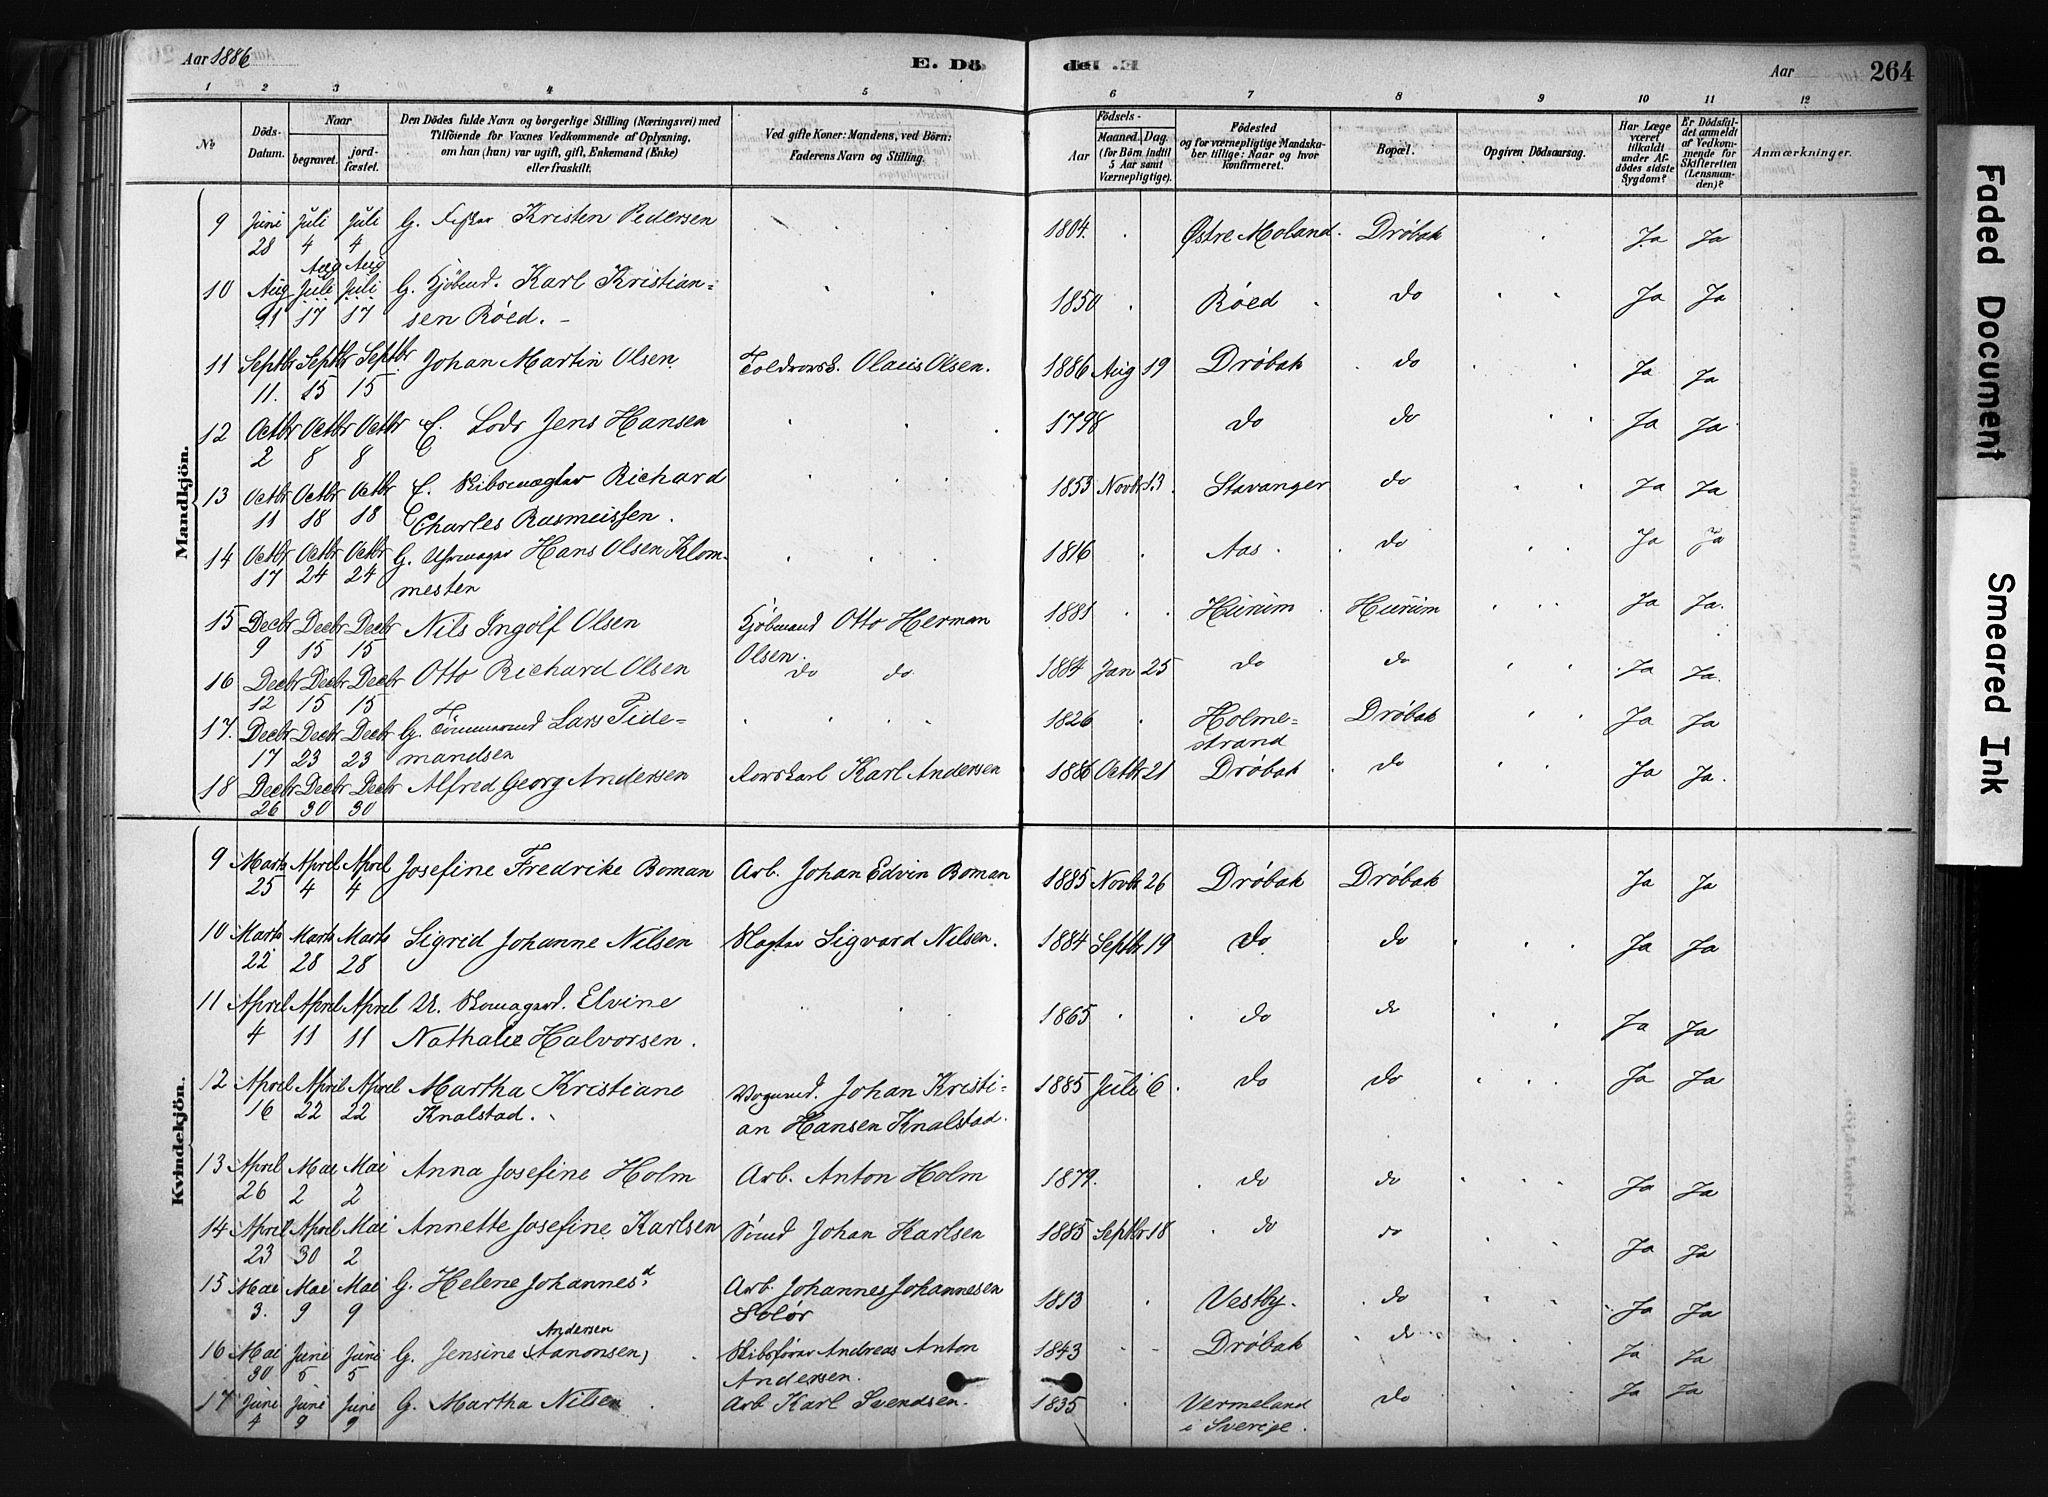 Aar 1886
E. Dö
de. E.
Aar
264
1 2 3 4 5 6 7 8 9 10 11 12
No
Döds-Datum.
Naar
begravet.
jordfæstet.
Den Dödes fulde Navn og borgerlige Stilling (Næringsvei) med
Tilföiende for Voxnes Vedkommende af Oplysning,
om han (hun) var ugift, gift, Enkemand (Enke)
eller fraskilt.
Ved gifte Koner: Mandens, ved Börn:
Faderens Navn og Stilling.
Födsels-
Aar
Maaned. Dag.
(for Börn indtil
5 Aar samt
Værnepligtige).
Födested
og for værnepligtige Mandska-
ber tillige: Naar og hvor
konfirmeret.
Bopæl.
Opgiven Dödsaarsag.
Har Læge
været
tilkaldt
under Af-
dödes sidste
Sygdom?
Er Dödsfal-
det anmeldt
af Vedkom-
mende for
Skifteretten
(Lensman-
den)?
Anmærkninger.
Mandkjön.
9 Juni 28 Juli 4 Juli 4 G. Kristen Pedersen 1804. Østre Moland. Drøbak Ja Ja
Aug Aug
10 Aug 21 Juli 17 Juli 17 G. Kjøbmd. Karl Kristian-
sen Røed. 1850 Røed do Ja Ja
11 Septbr 11. Septbr 15 Septbr 15 Johan Martin Olsen Toldrorsk. Olaus Olsen. 1886 Aug 19 Drøbak do Ja Ja
12 Octbr 2 Octbr 8 Octbr 8 E. Lods Jens Hansen 1798 do do Ja Ja
13 Octbr 11 Octbr 18 Octbr 18 E. Skibsmægler Richard
Charles Rasmussen. 1853 Novbr 13 Stavanger do Ja Ja
14 Octbr 17 Octbr 24 Octbr 24 G. Hans Olsen Klom-
mesten 1816 Aas. do Ja Ja
15 Decbr 9 Decbr 15 Decbr 15 Nils Ingolf Olsen Kjøbmand Otto Herman
Olsen. 1881 Hurum Hurum Ja Ja.
16 Decbr 12 Decbr 15 Decbr 15 Otto Richard Olsen do do 1884 Jan 25 do do Ja Ja.
17. Decbr 17 Decbr 23 Decbr 23 G. Tømmermd Lars Tide-
mandsen 1826 Holme-
strand Drøbak Ja Ja
18 Decbr 26 Decbr 30 Decbr 30 Alfred Georg Andersen Rorskarl Karl Andersen 1886 Octbr 21 Drøbak do Ja Ja.
Kvindekjön.
9 Marts 25 April 4 April 4 Josefine Fredrike Boman Arb. Johan Edvin Boman 1885 Novbr 26 Drøbak Drøbak Ja Ja
10 Marts 22 Marts 28 Marts 28 Sigrid Johanne Nilsen Slagter Sigvard Nilsen. 1884 Septbr 19 do do Ja Ja
11 April 4 April 11 April 11 U. Skomagerd. Elvine
Nathalie Halvorsen. 1865 do do Ja Ja
12 April 16 April 22 April 22 Martha Kristiane
Knalstad. Vognmd. Johan Kristi-
an Hansen Knalstad. 1885 Juli 6 do do Ja Ja
13 April 26 Mai 2 Mai 2 Anna Josefine Holm Arb. Anton Holm 1879. do do Ja Ja
14 April 23 April 30 Mai 2 Annette Josefine Karlsen Sømd Johan Karlsen 1885 Septbr 18 do do Ja Ja
15 Mai 3. Mai 9 Mai 9 G. Helene Johannesd Arb. Johannes Johannesen
Solør 1813 Vestby. do Ja Ja
Andersen
16 Mai 30 Juni 5 Juni 5 G. Jensine (Aanonsen) Skibsfører Andreas Anton
Andersen. 1843 Drøbak do Ja Ja
17 Juni 4 Juni 9 Juni 9 G. Martha Nilsen Arb Karl Svendsen. 1835 Vermeland
i Sverige. do Ja Ja
Faded Document
Smeared Ink